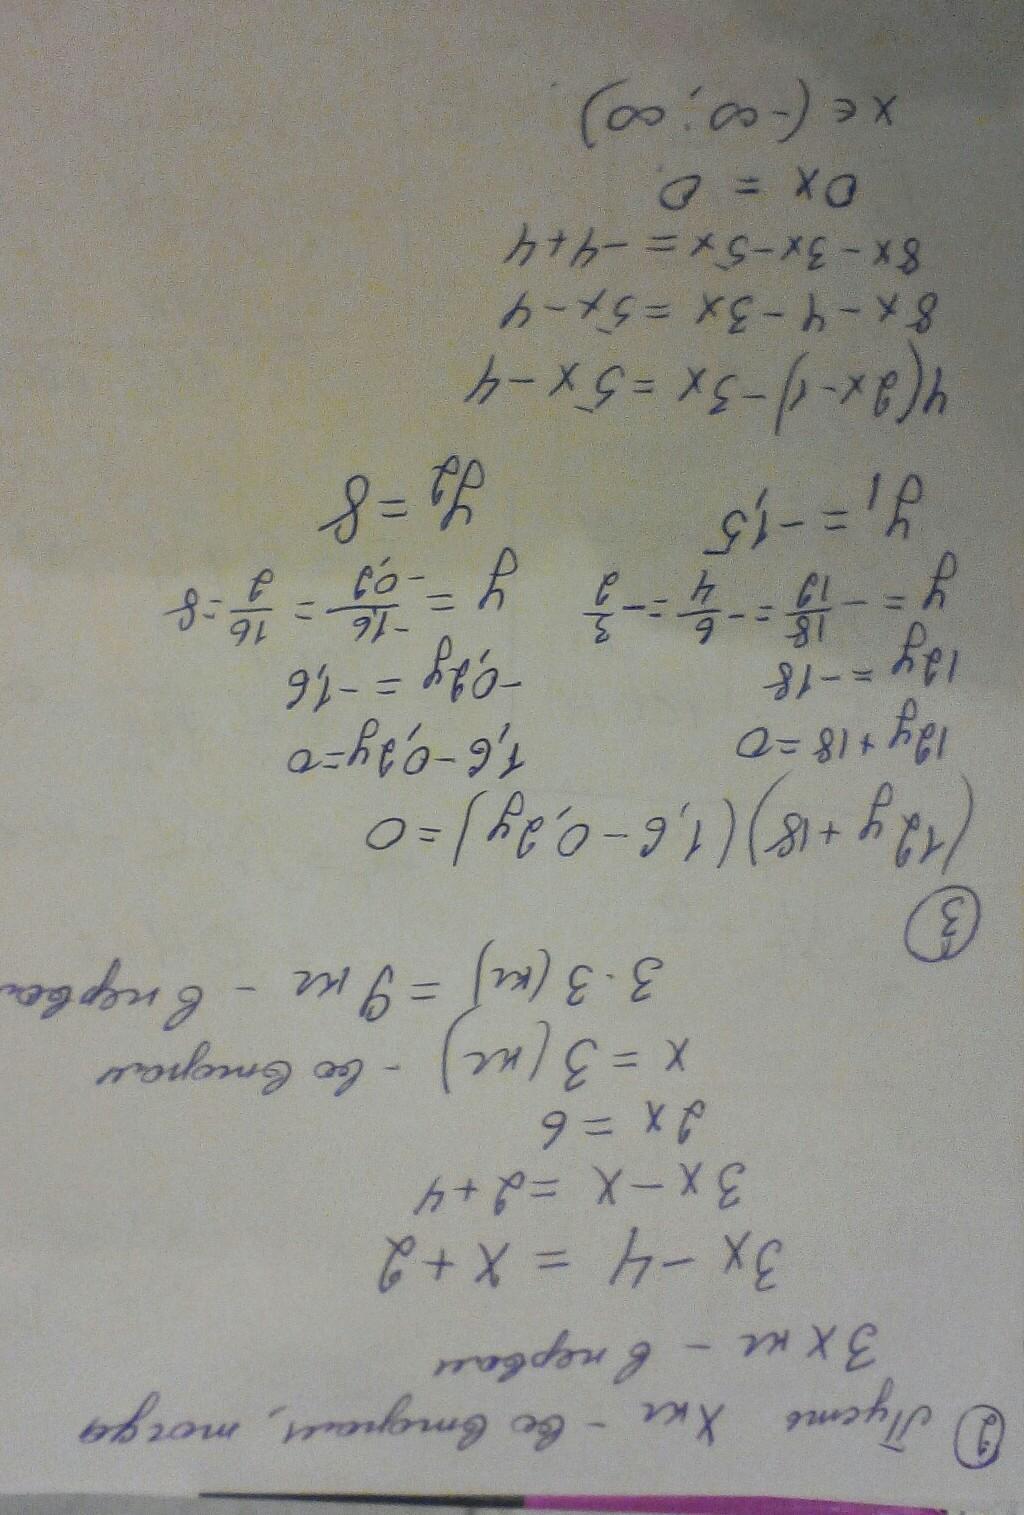 ② Пусть x кг - во втором, тогда
3x кг - в первом
3x - 4 = x + 2
3x - x = 2 + 4
2x = 6
x = 3 (кг) - во втором
3 · 3 (кг) = 9 кг - в первом
③
(12y + 18)(1,6 - 0,2y) = 0
12y + 18 = 0 1,6 - 0,2y = 0
12y = -18 -0,2y = -1,6
y = -18/12 = -6/4 = -3/2 y = -1,6/-0,2 = 16/2 = 8
y₁ = -1,5 y₂ = 8
4(2x - 1) - 3x = 5x - 4
8x - 4 - 3x = 5x - 4
8x - 3x - 5x = -4 + 4
0x = 0
x ∈ (-∞; ∞)